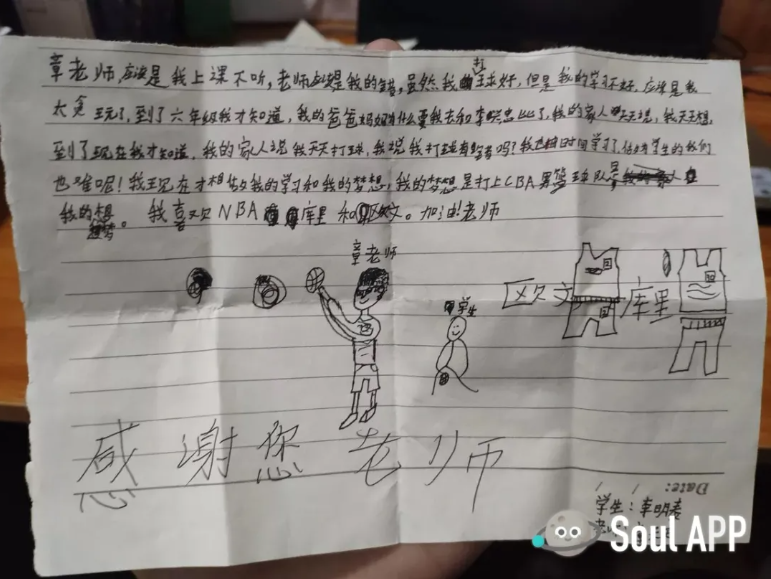 章老师,应该是我上课不听,老师应该是我的错,虽然我打球好,但是我的学习不好,应该是我
太贪玩了,到了六年级我才知道,我的爸爸妈妈为什么要我去和李比了,我的家人天天说,我天天想,
到了现在我才知道,我的家人说我天天打球,我说我打球有错吗?我也用时间学习了,作为学生的我们
也难呢!我现在才想好我的学习和我的梦想,我的梦想是打上CBA男篮球队
我的梦想。我喜欢NBA库里和欧文。加油!老师
章老师
学生
欧文
库里
感谢您老师
Date: / /
学生:李明
Soul APP